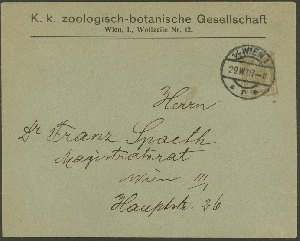 K. k. zoologisch-botanische Gesellschaft
Wien, I., Wollzeile Nr. 12.
WIEN
Herrn
Dr Franz Spaeth
Magistratsrat
Wien III,
Hauptstr. 26